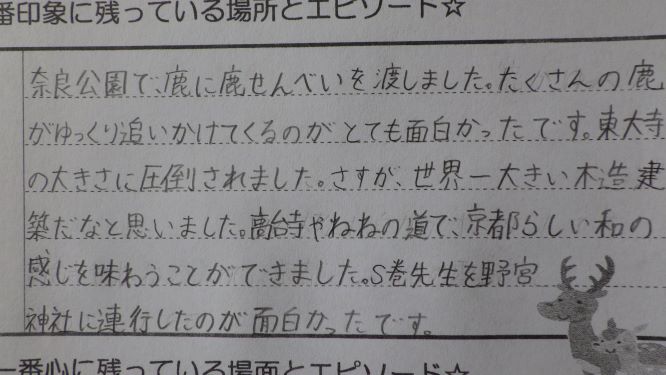 番印象に残っている場所とエピソード☆
奈良公園で、鹿に鹿せんべいを渡しました。たくさんの鹿
がゆっくり追いかけてくるのがとても面白かったです。東大寺
の大きさに圧倒されました。さすが、世界一大きい木造建
築だなと思いました。高台寺やねねの道で、京都らしい和の
感じを味わうことができました。S巻先生を野宮
神社に連行したのが面白かったです。
一番心に残っている場面とエピソード☆